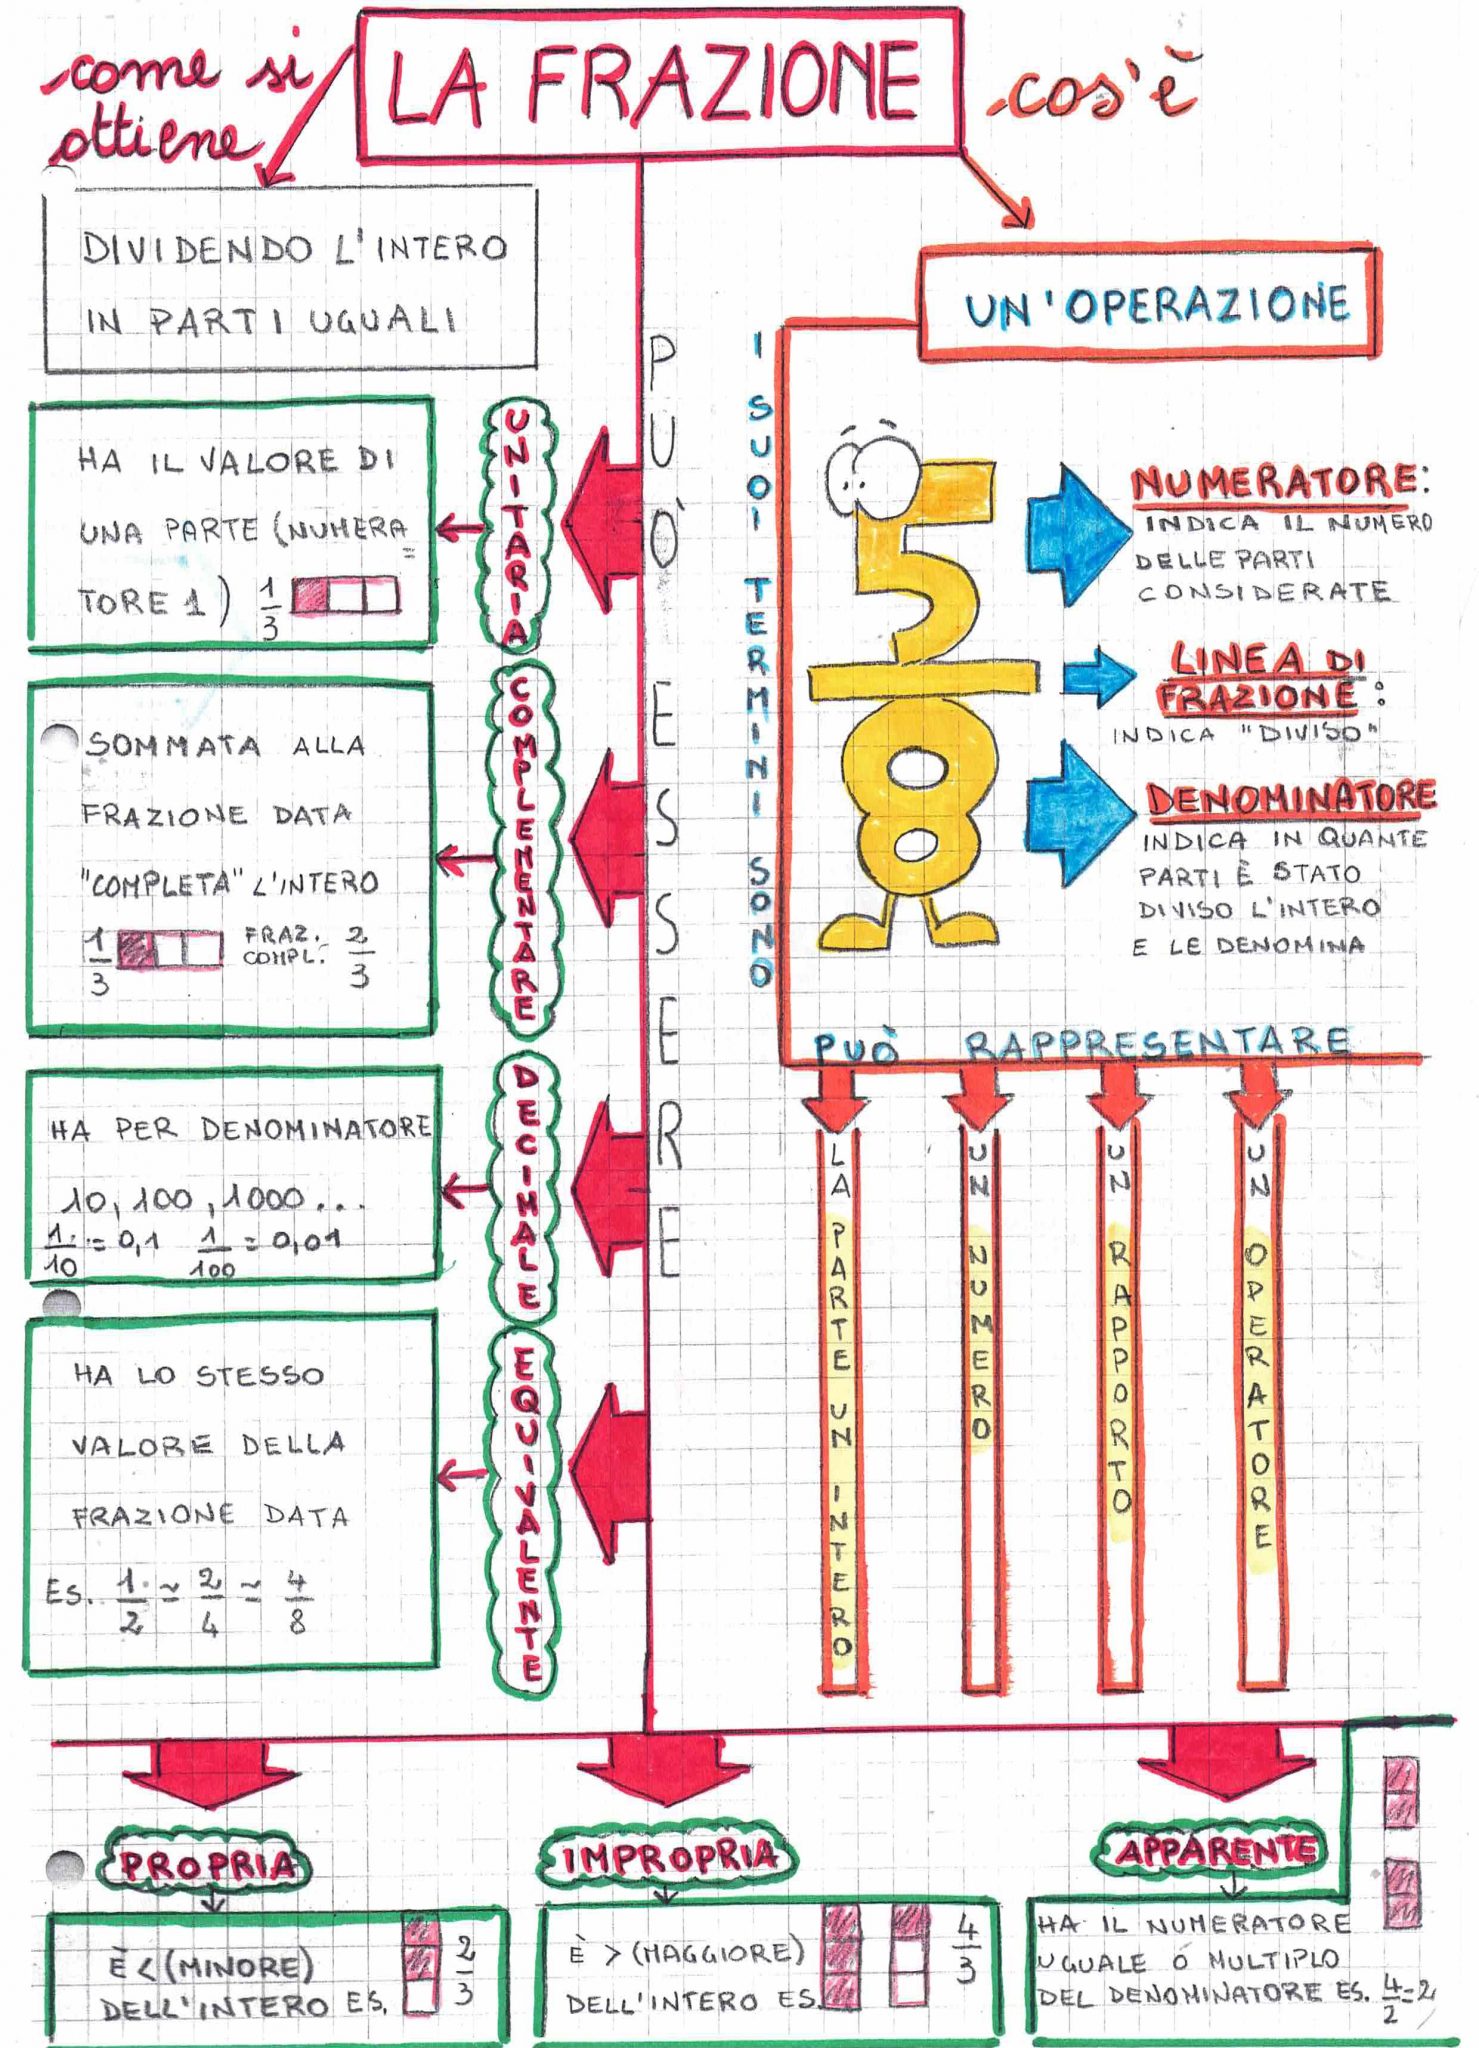 come si
ottiene
LA FRAZIONE
cos'è
DIVIDENDO L'INTERO
IN PARTI UGUALI
UN'OPERAZIONE
PUÒ ESSERE
UNITARIA
HA IL VALORE DI
UNA PARTE (NUMERA=
TORE 1) 1/3
COMPLEMENTARE
SOMMATA ALLA
FRAZIONE DATA
"COMPLETA" L'INTERO
1/3 FRAZ. COMPL. 2/3
DECIMALE
HA PER DENOMINATORE
10, 100, 1000...
1/10 = 0,1 1/100 = 0,01
EQUIVALENTE
HA LO STESSO
VALORE DELLA
FRAZIONE DATA
ES. 1/2 ~ 2/4 ~ 4/8
I SUOI TERMINI SONO
5/8
NUMERATORE:
INDICA IL NUMERO
DELLE PARTI
CONSIDERATE
LINEA DI
FRAZIONE:
INDICA "DIVISO"
DENOMINATORE
INDICA IN QUANTE
PARTI È STATO
DIVISO L'INTERO
E LE DENOMINA
PUÒ RAPPRESENTARE
LA PARTE UN INTERO
UN NUMERO
UN RAPPORTO
UN OPERATORE
PROPRIA
È < (MINORE)
DELL'INTERO ES. 2/3
IMPROPRIA
È > (MAGGIORE)
DELL'INTERO ES. 4/3
APPARENTE
HA IL NUMERATORE
UGUALE O MULTIPLO
DEL DENOMINATORE ES. 4/2=2